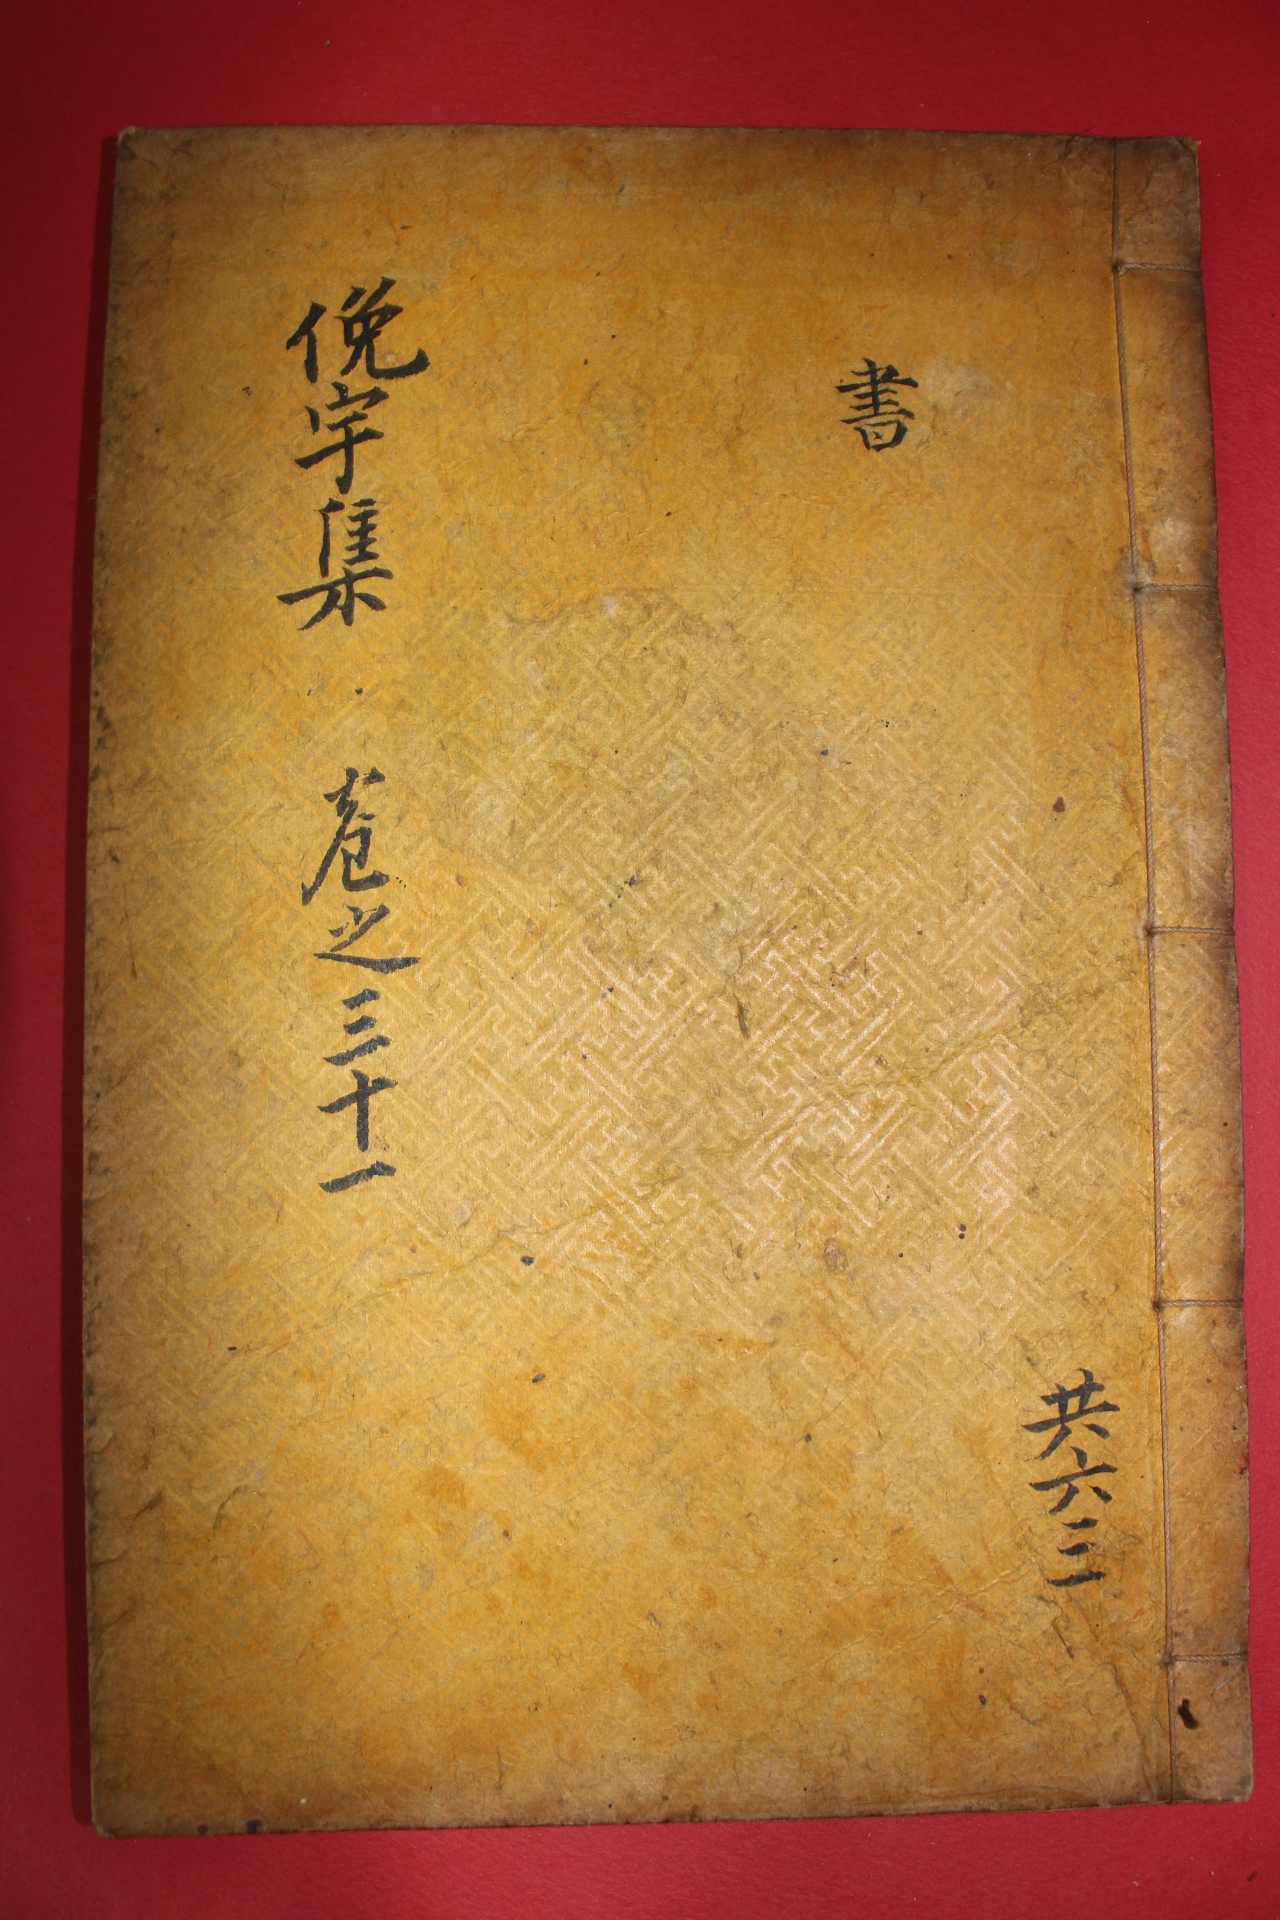 書
共六三
俛宇集 卷之三十一